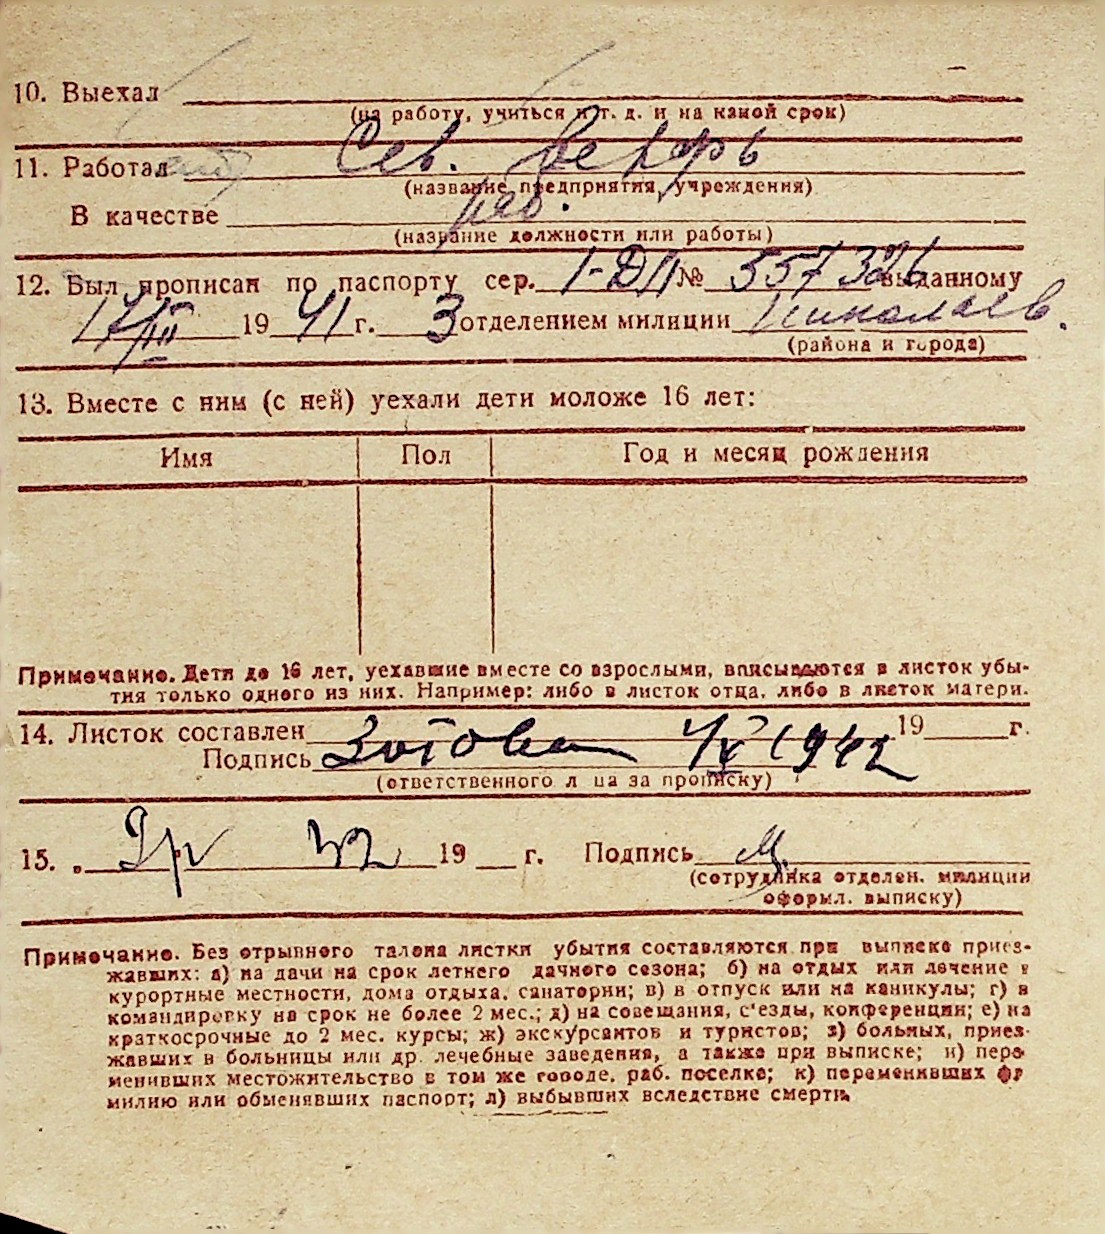 10. Выехал
(на работу, учиться и т. д. и на какой срок)
11. Работал Сев.
(название предприятия, учреждения)
В качестве раб.
(название должности или работы)
12. Был прописан по паспорту сер. 1-ДЛ № 557326 выданному
17/III 19 41 г. 3 отделением милиции Николаев.
(района и города)
13. Вместе с ним (с ней) уехали дети моложе 16 лет:
Имя Пол Год и месяц рождения
Примечание. Дети до 16 лет, уехавшие вместе со взрослыми, вписываются в листок убы-
тия только одного из них. Например: либо в листок отца, либо в листок матери.
14. Листок составлен 19 г.
Подпись Зотова 4/X 1942
(ответственного л ца за прописку)
15. „ 42 19 г. Подпись
(сотрудника отделен. милиции
оформл. выписку)
Примечание. Без отрывного талона листки убытия составляются при выписке приез-
жавших: а) на дачи на срок летнего дачного сезона; б) на отдых или лечение в
курортные местности, дома отдыха, санатории; в) в отпуск или на каникулы; г) в
командировку на срок не более 2 мес.; д) на совещания, с'езды, конференции; е) на
краткосрочные до 2 мес. курсы; ж) экскурсантов и туристов; з) больных, приез-
жавших в больницы или др. лечебные заведения, а также при выписке; и) пере
менивших местожительство в том же городе, раб. поселке; к) переменивших фа
милию или обменявших паспорт; л) выбывших вследствие смерти.